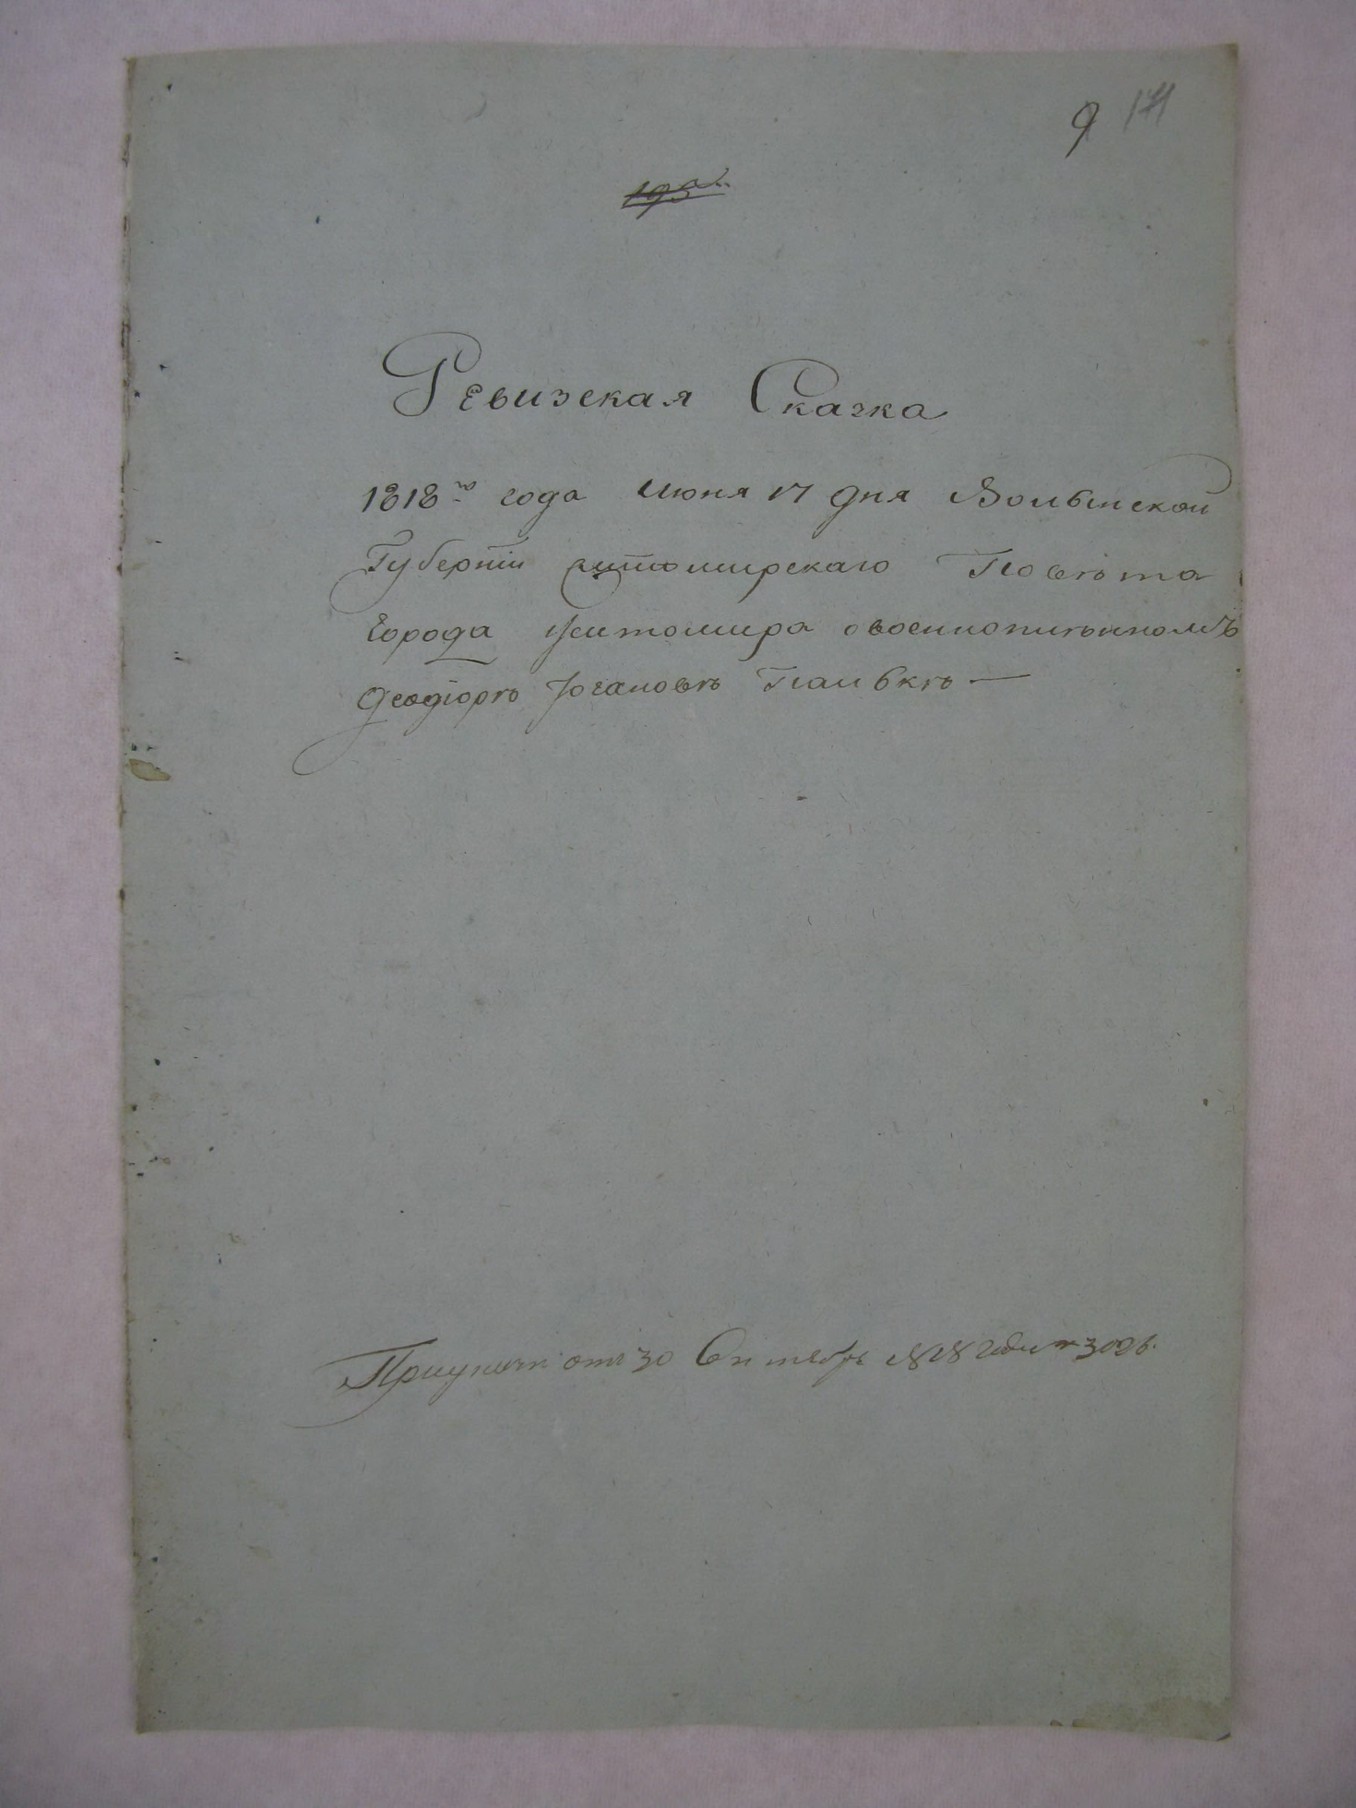 9 171
195
Ревизская Сказка
1818го года Июня 17 дня Волынской
Губернiи житомирскаго Повѣта
города Житомира о военноплѣнномъ
Феодiорѣ Iогановѣ
от 30 Сентября 1818 года № 3026.